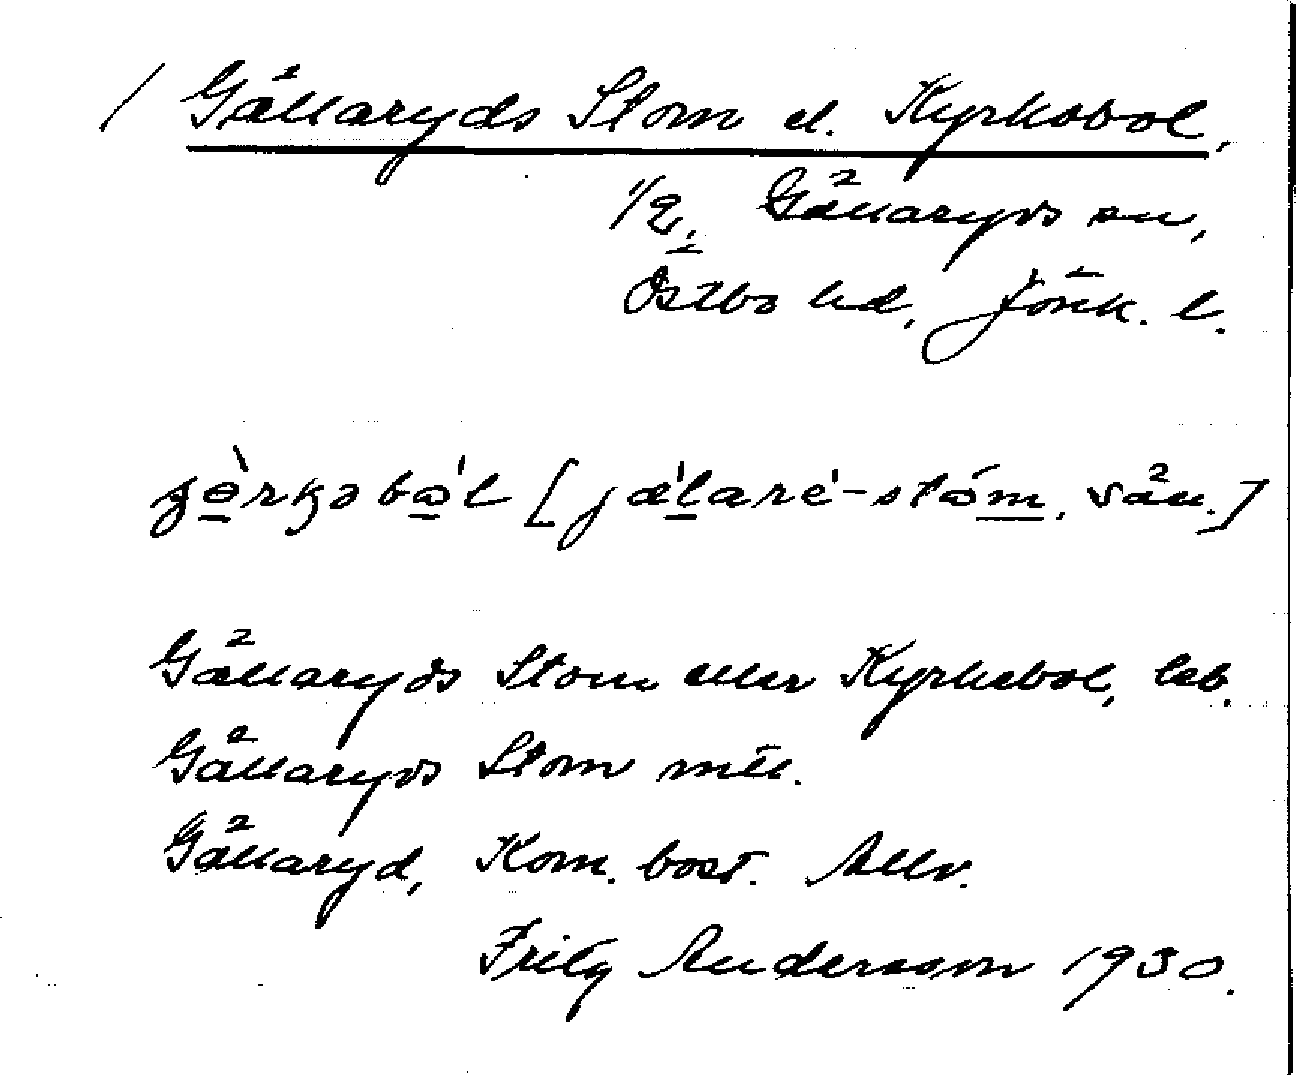 / Gällaryds Stom el. Kyrkobol,
1/2, Gällaryds sn,
Östbo hd, Jönk. l.
[jæ̀laré-stóm, sän.]
Gällaryds Stom eller Kyrkebol, leb.
Gällaryds Stom mtl.
Gällaryd, Kom. bost. Allv.
Fritz Andersson 1930.